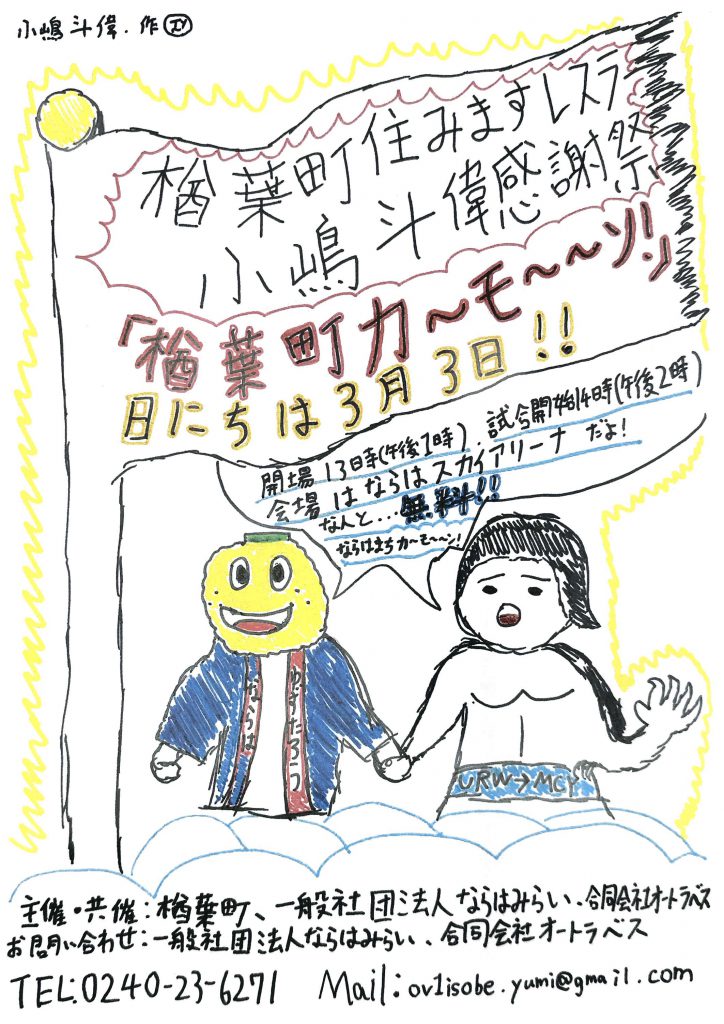 小嶋斗偉.作
楢葉町住みますレスラー
小嶋斗偉感謝祭
「楢葉町カ〜モ〜〜ン!」
日にちは3月3日!!
開場 13時(午後1時)、試合開始14時(午後2時)
会場はならはスカイアリーナ だよ!
なんと...無料!!
ならはまちカ〜モ〜〜ン!
ならは
ゆずたろう
URW→MCY
主催・共催:楢葉町、一般社団法人ならはみらい、合同会社オートラベス
お問い合わせ:一般社団法人ならはみらい、合同会社オートラベス
TEL:0240-23-6271 Mail:ov1isobe.yumi@gmail.com